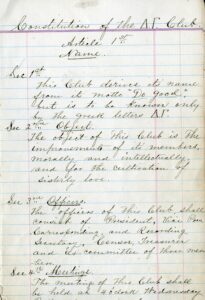 Constitution of the ΔΓ Club.
Article 1st
Name.
Sec 1st
This Club derives its name
from its motto "Do Good",
but is to be known only
by the greek letters ΔΓ.
Sec 2nd Object.
The object of this Club is the
improvement of its members,
morally and intellectually,
and for the cultivation of
sisterly love.
Sec 3rd Officers.
The officers of this Club shall
consist of President, Vice Pres
Corresponding and Recording
Secretary, Censor, Treasurer
and Ex. committee of three mem
bers
Sec 4th Meetings.
The meeting of this Club shall
be held at 4 oclock Wednesday